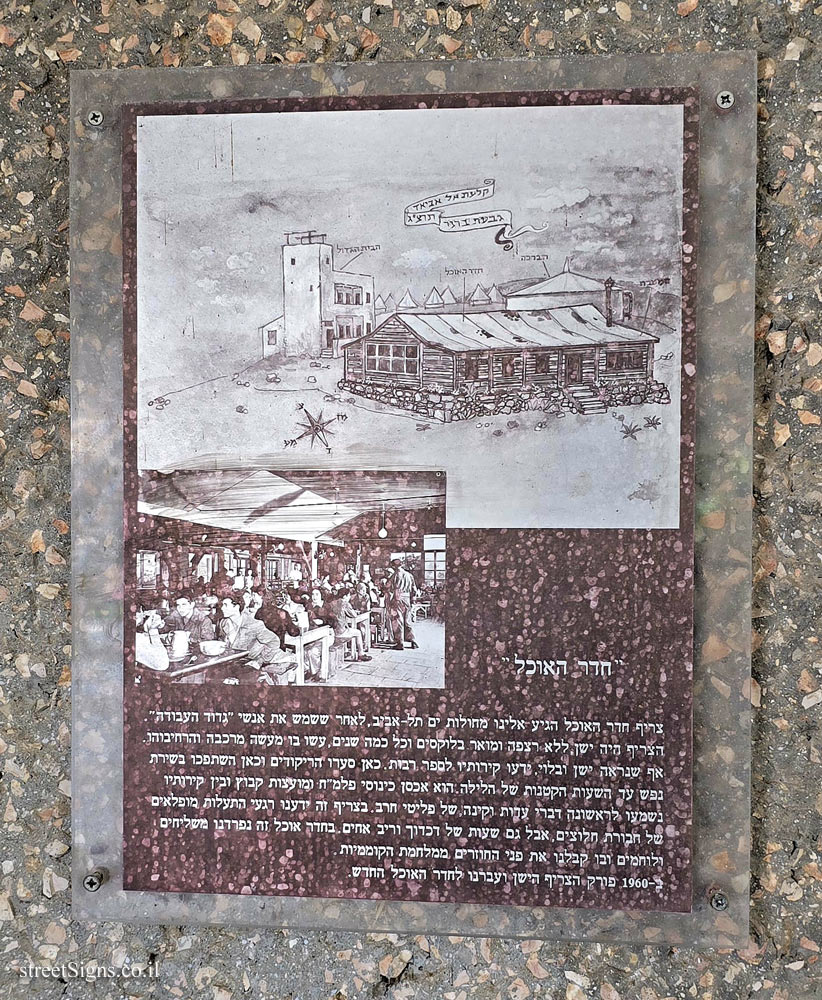 קלעת אל אביאד
גבעת ברנר תרצ"ג
הבית הגדול
חדר האוכל
הברכה
"חדר האוכל"
צריף חדר האוכל הגיע אלינו מחולות ים תל-אביב, לאחר ששמש את אנשי "גדוד העבודה".
הצריף היה ישן, ללא רצפה ומואר בלוקסים וכל כמה שנים, עשו בו מעשה מרכבה והרחיבוהו.
אף שנראה ישן ובלוי, ידעו קירותיו לספר רבות. כאן סערו הריקודים וכאן השתפכו בשירת
נפש עד השעות הקטנות של הלילה. הוא אכסן כינוסי פלמ"ח ומועצות קבוץ ובין קירותיו
נשמעו לראשונה דברי עדות וקינה, של פליטי חרב. בצריף זה ידענו רגעי התעלות מופלאים
של חבורת חלוצים, אבל גם שעות של דכדוך וריב אחים. בחדר אוכל זה נפרדנו משליחים
ולוחמים ובו קבלנו את פני החוזרים ממלחמת הקוממיות.
ב-1960 פורק הצריף הישן ועברנו לחדר האוכל החדש.
streetSigns.co.il